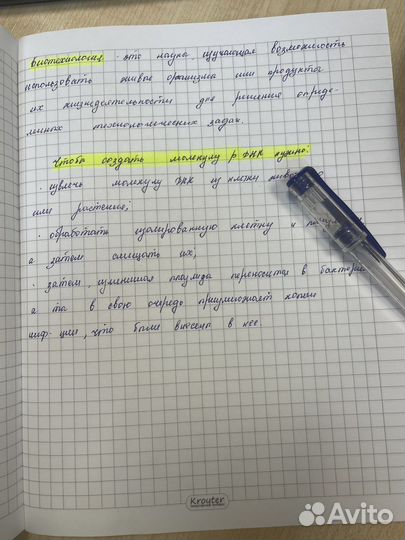 Биотехнология - это наука, изучающая возможность
использовать живые организмы или продукты
их жизнедеятельности для решения опреде-
лённых технологических задач.
Чтобы создать молекулу р ДНК нужно:
· извлечь молекулу ДНК из клетки
или растения;
· обработать изолированную клетку и
а затем смешать их;
· затем, изменённая плазмида переносится в бактерию
а та в свою очередь приумножает копии
инф-ции, что были внесены в нее.
Kroyter
Avito